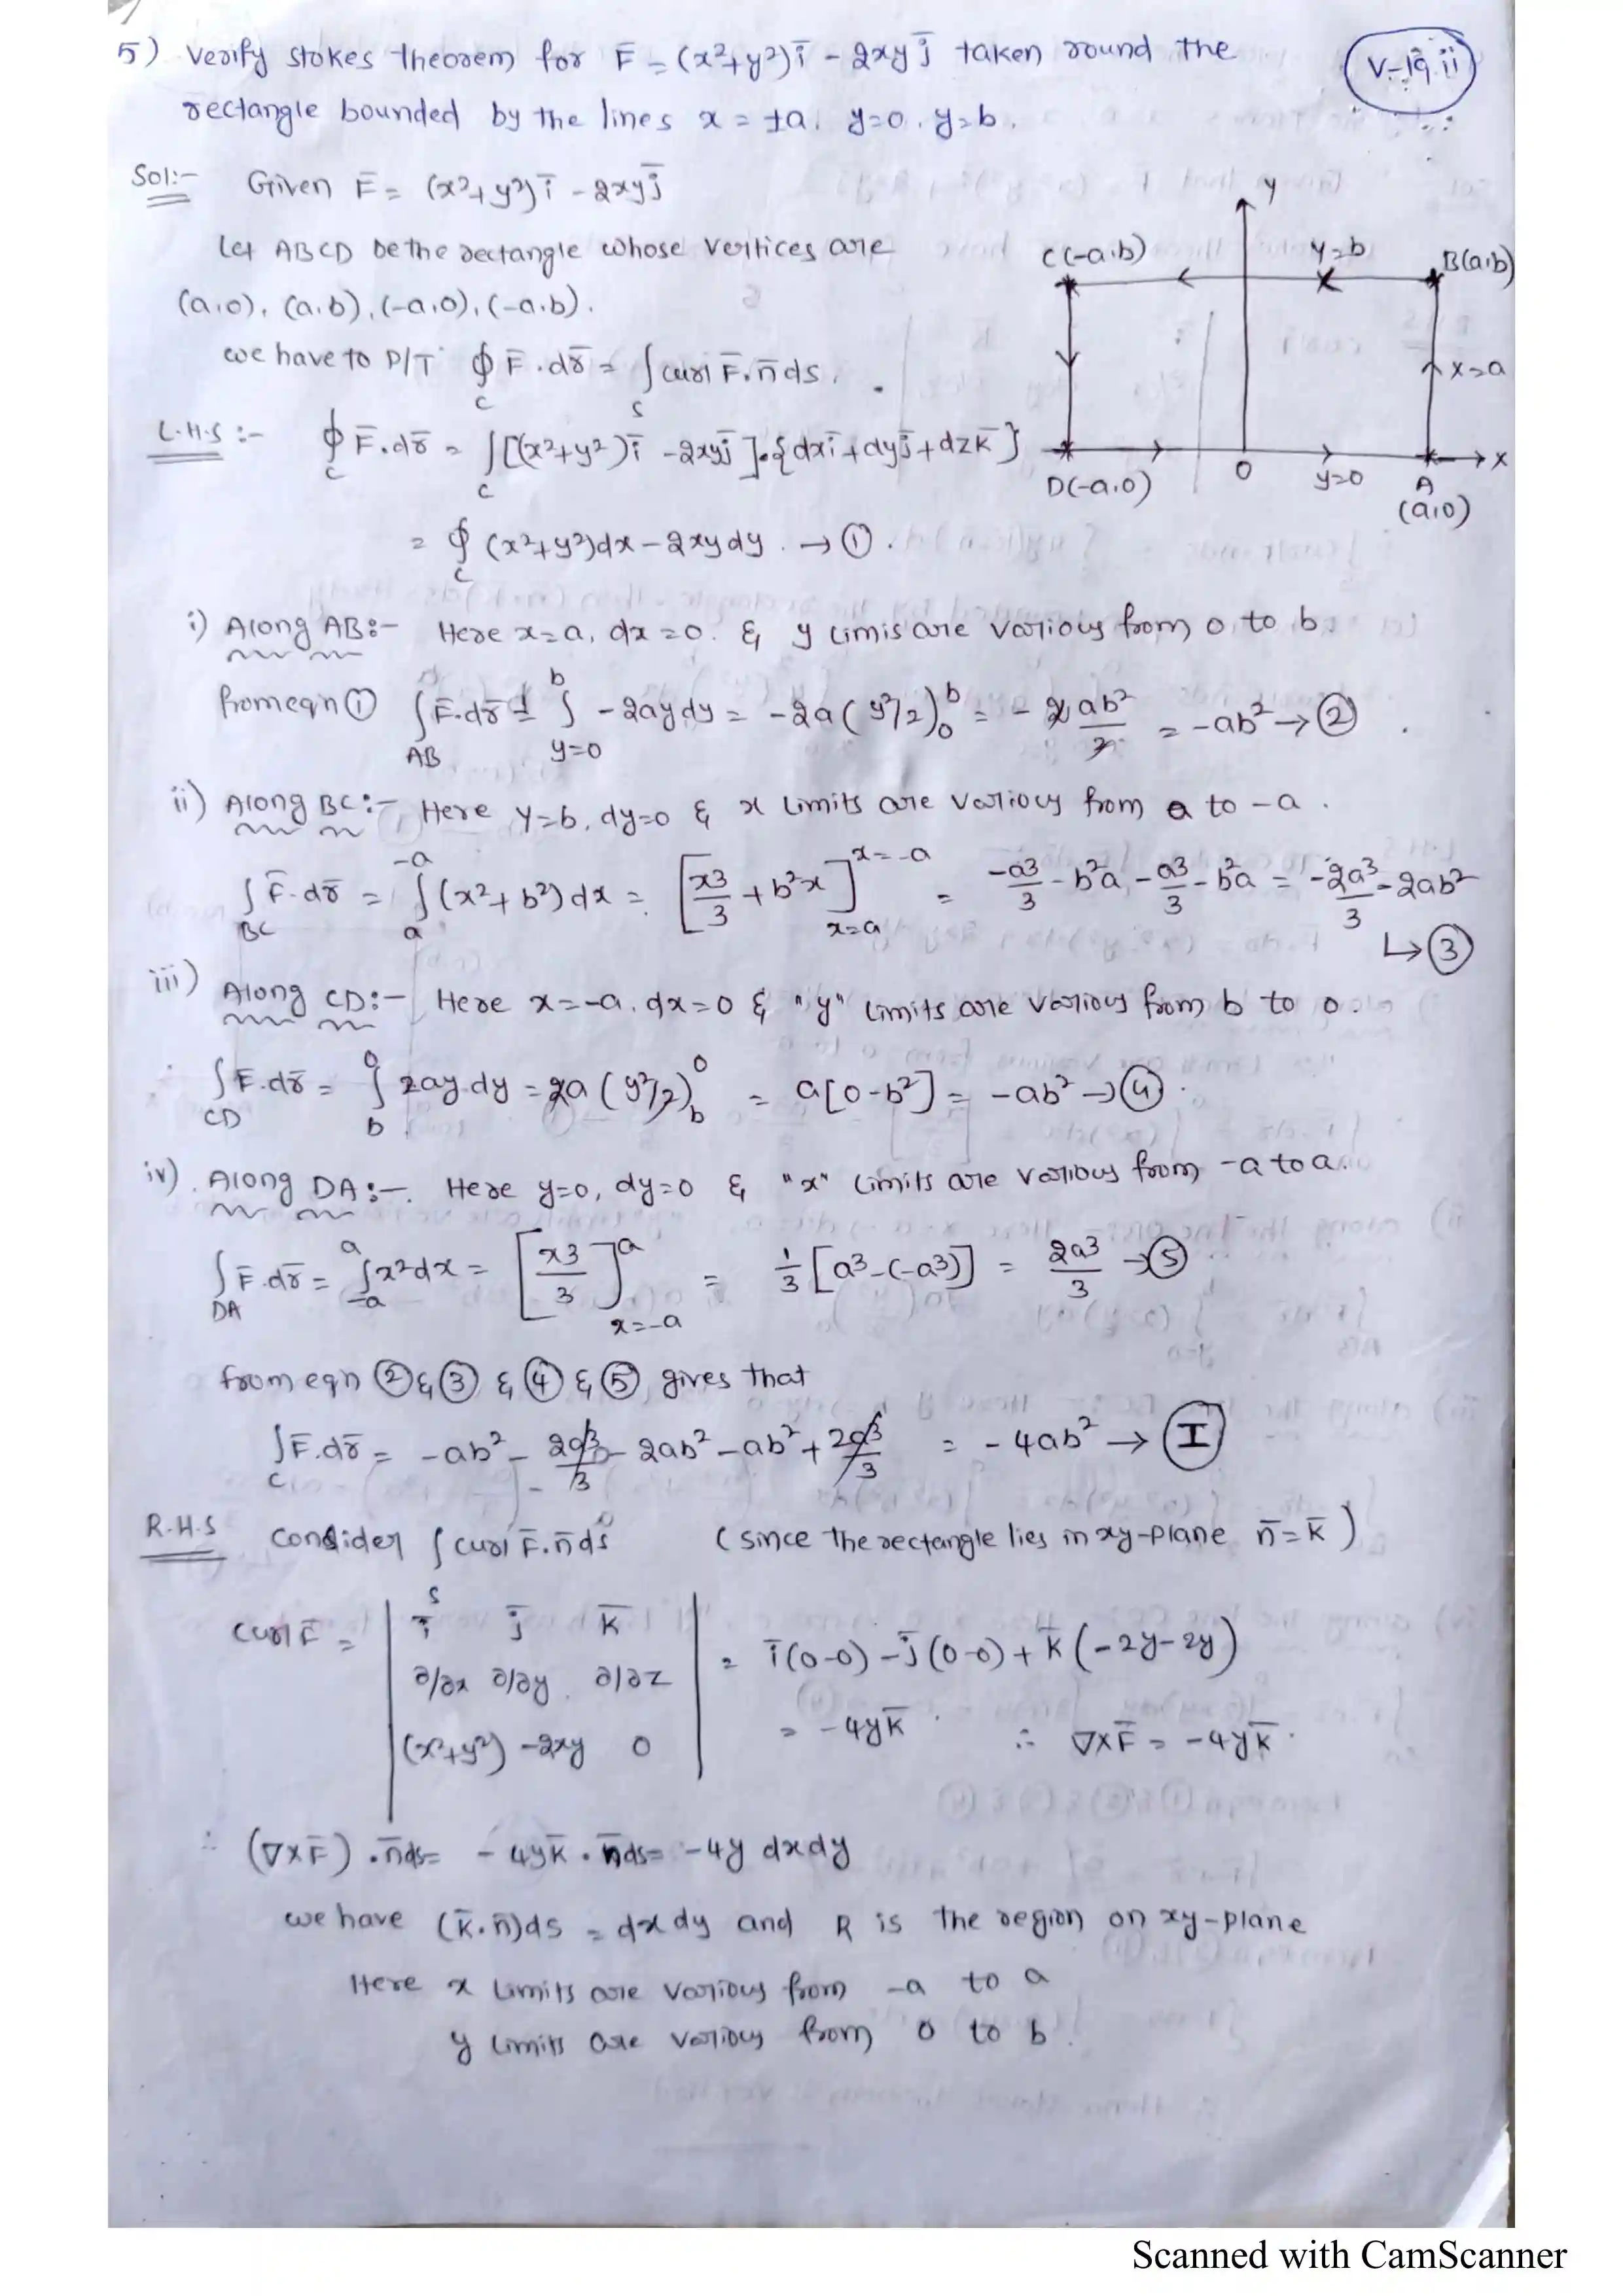 5) Verify stokes theorem for F̄ = (x²+y²)ī - 2xy j̄ taken round the
rectangle bounded by the lines x = ±a, y=0, y=b.
V-19.ii
Sol:- Given F̄ = (x²+y²)ī - 2xyj̄
Let ABCD be the rectangle whose vertices are
(a,0), (a,b), (-a,0), (-a,b).
we have to P/T ∮_C F̄.dr̄ = ∫_S curl F̄.n̄ ds.
Y
C(-a,b) y=b B(a,b)
x=a
D(-a,0) O y=0 A X
(a,0)
L.H.S :- ∮_C F̄.dr̄ = ∫_C [(x²+y²)ī - 2xyj̄].{dxī+dyj̄+dzk̄}
= ∮_C (x²+y²)dx - 2xydy. → ①.
i) Along AB:- Here x=a, dx=0. & y limis are various from 0 to b
from eqn ① ∫_AB F̄.dr̄ = ∫_{y=0}^b -2aydy = -2a(y²/2)_0^b = -2ab²/2 = -ab² → ②
ii) Along BC:- Here y=b, dy=0 & x limits are various from a to -a.
∫_BC F̄.dr̄ = ∫_a^{-a} (x²+b²)dx = [x3/3 + b²x]_{x=a}^{x=-a} = -a3/3 - b²a - a3/3 - b²a = -2a³/3 - 2ab²
↳ ③
iii) Along CD:- Here x=-a, dx=0 & "y" limits are various from b to 0.
∫_CD F̄.dr̄ = ∫_b^0 2ay.dy = 2a(y²/2)_b^0 = a[0-b²] = -ab² → ④.
iv) Along DA:-. Here y=0, dy=0 & "x" limits are various from -a to a.
∫_DA F̄.dr̄ = ∫_{-a}^a x²dx = [x3/3]_{x=-a}^a = 1/3[a³-(-a³)] = 2a3/3 → ⑤
from eqn ② & ③ & ④ & ⑤ gives that
∫_C F̄.dr̄ = -ab² - 2a3/3 - 2ab² - ab² + 2a3/3 = -4ab² → Ⓘ
R.H.S Consider ∫_S curl F̄.n̄ ds (since the rectangle lies in xy-plane n̄=k̄)
curl F̄ = | ī j̄ k̄ | = ī(0-0) - j̄(0-0) + k̄(-2y-2y)
∂/∂x ∂/∂y ∂/∂z
= -4yk̄. ∴ ∇×F̄ = -4yk̄.
(x²+y²) -2xy 0
∴ (∇×F̄).n̄ds = -4yk̄.n̄ds = -4y dxdy
we have (k̄.n̄)ds = dxdy and R is the region on xy-plane
Here x limits are various from -a to a
y limits are various from 0 to b.
Scanned with CamScanner